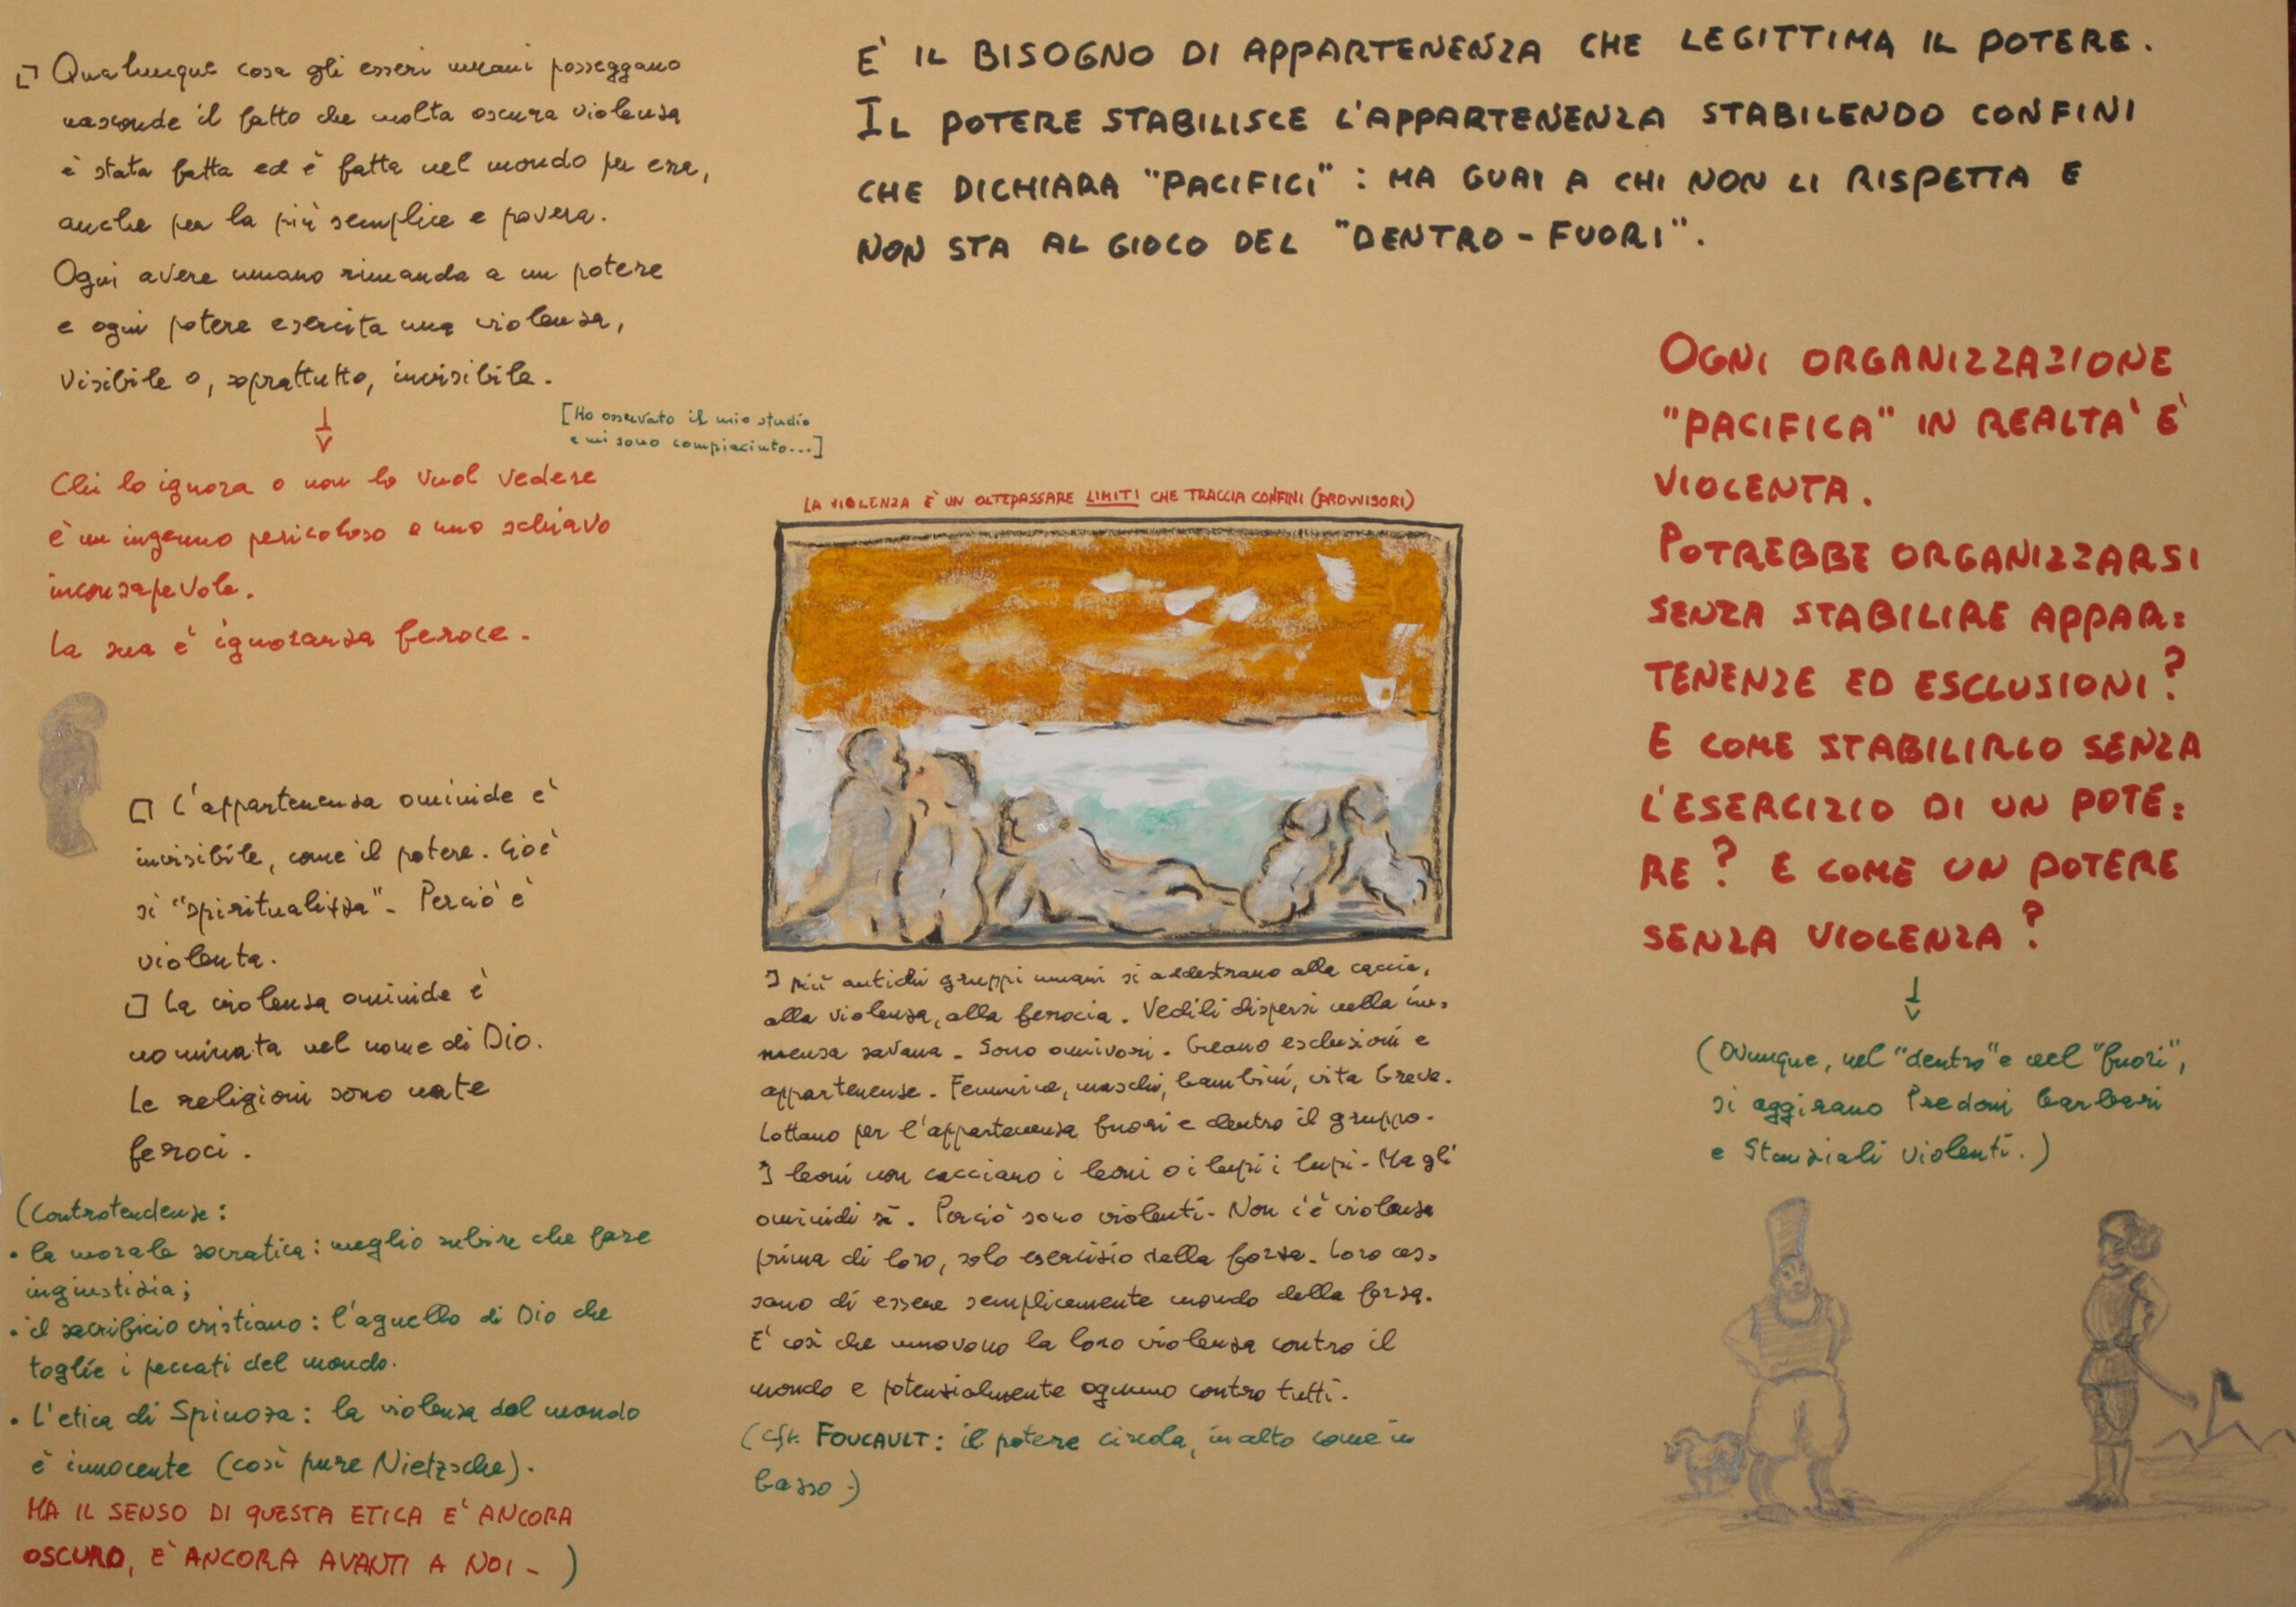 Qualunque cosa gli esseri umani posseggano
nasconde il fatto che molta oscura violenza
è stata fatta ed è fatta nel mondo per essa,
anche per la più semplice e povera.
Ogni avere umano rimanda a un potere
e ogni potere esercita una violenza,
visibile o, soprattutto, invisibile.
[Ho osservato il mio studio
e mi sono compiaciuto...]
Chi lo ignora o non lo vuol vedere
è un ingenuo pericoloso e uno schiavo
inconsapevole.
La sua è ignoranza feroce.
L'appartenenza ominide è
invisibile, come il potere. Cioè
si "spiritualizza". Perciò è
violenta.
La violenza ominide è
nominata nel nome di Dio.
Le religioni sono nate
feroci.
(Controtendenze:
• la morale socratica: meglio subire che fare
ingiustizia;
• il sacrificio cristiano: l'agnello di Dio che
toglie i peccati del mondo.
• L'etica di Spinoza: la violenza del mondo
è innocente (così pure Nietzsche).
MA IL SENSO DI QUESTA ETICA E' ANCORA
OSCURO, E' ANCORA AVANTI A NOI - )
E' IL BISOGNO DI APPARTENENZA CHE LEGITTIMA IL POTERE.
IL POTERE STABILISCE L'APPARTENENZA STABILENDO CONFINI
CHE DICHIARA "PACIFICI": MA GUAI A CHI NON LI RISPETTA E
NON STA AL GIOCO DEL "DENTRO-FUORI".
LA VIOLENZA E' UN OLTEPASSARE LIMITI CHE TRACCIA CONFINI (PROVVISORI)
I più antichi gruppi umani si addestrano alla caccia,
alla violenza, alla ferocia. Vedili dispersi nella im=
mensa savana. Sono omnivori. Creano esclusioni e
appartenenze. Femmine, maschi, bambini, vita breve.
Lottano per l'appartenenza fuori e dentro il gruppo.
I leoni non cacciano i leoni o i lupi i lupi. Ma gli
ominidi sì. Perciò sono violenti. Non c'è violenza
prima di loro, solo esercizio della forza. Loro ces=
sano di essere semplicemente mondo della forza.
E' così che muovono la loro violenza contro il
mondo e potenzialmente ognuno contro tutti.
(cfr. FOUCAULT: il potere circola, in alto come in
basso.)
OGNI ORGANIZZAZIONE
"PACIFICA" IN REALTA' E'
VIOLENTA.
POTREBBE ORGANIZZARSI
SENZA STABILIRE APPAR=
TENENZE ED ESCLUSIONI?
E COME STABILIRLO SENZA
L'ESERCIZIO DI UN POTE=
RE? E COME UN POTERE
SENZA VIOLENZA?
(Ovunque, nel "dentro" e nel "fuori",
si aggirano Predoni barbari
e Stanziali violenti.)